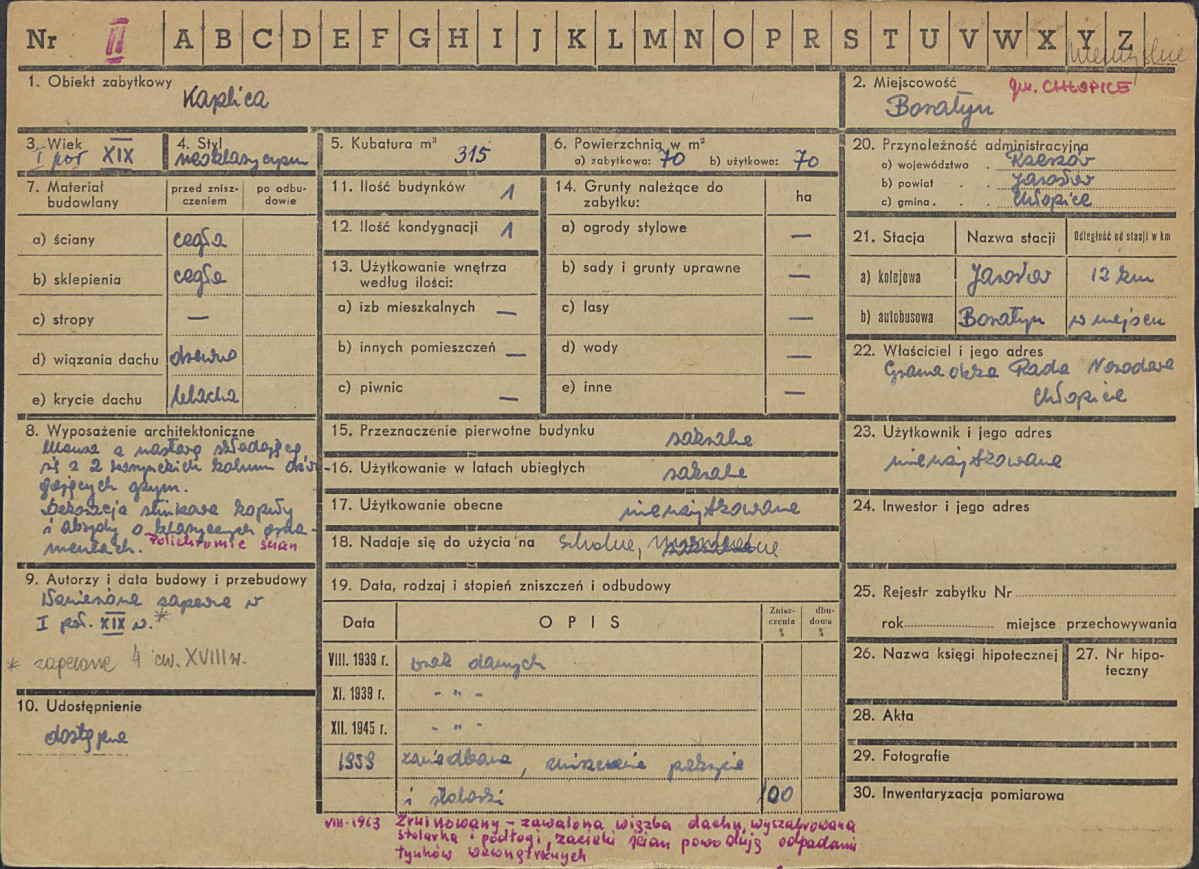 Nr II A B C D E F G H I J K L M N O P R S T U V W X Y Z
1. Obiekt zabytkowy
Kaplica
2. Miejscowość gm. CHŁOPICE
Boratyn
3. Wiek
I poł XIX
4. Styl
neoklasycyzm
5. Kubatura m³ 315
6. Powierzchnia w m²
a) zabytkowa: 70 b) użytkowa: 70
20. Przynależność administracyjna
a) województwo . Rzeszów
b) powiat . . Jarosław
c) gmina . . Chłopice
7. Materiał budowlany
przed zniszczeniem
po odbudowie
a) ściany cegła
b) sklepienia cegła
c) stropy —
d) wiązania dachu drewno
e) krycie dachu blacha
11. Ilość budynków 1
12. Ilość kondygnacji 1
13. Użytkowanie wnętrza
według ilości:
a) izb mieszkalnych —
b) innych pomieszczeń —
c) piwnic —
14. Grunty należące do
zabytku:
ha
a) ogrody stylowe —
b) sady i grunty uprawne —
c) lasy —
d) wody —
e) inne —
21. Stacja Nazwa stacji Odległość od stacji w km
a) kolejowa Jarosław 12 km
b) autobusowa Boratyn w miejscu
22. Właściciel i jego adres
Gromadzka Rada Narodowa
Chłopice
8. Wyposażenie architektoniczne
Mensa z nastawą składającą
się z 2 korynckich kolumn dźwi-
gających gzym.
Dekoracja stiukowa kopuły
i absydy o klasycznych orna-
mentach. Polichromie ścian
15. Przeznaczenie pierwotne budynku sakralne
16. Użytkowanie w latach ubiegłych sakralne
17. Użytkowanie obecne nieużytkowana
18. Nadaje się do użycia na
23. Użytkownik i jego adres
nieużytkowana
24. Inwestor i jego adres
9. Autorzy i data budowy i przebudowy
Wzniesiona zapewne w
I poł. XIX w.*
* zapewne 4 ćw. XVIII w.
10. Udostępnienie
dostępna
19. Data, rodzaj i stopień zniszczeń i odbudowy
Data
OPIS
Zniszczenia %
dbudowa %
VIII. 1939 r. brak danych
XI. 1939 r. - " -
XII. 1945 r. - " -
1959 zaniedbana, zniszczenie pokrycia
i stolarki 100
VIII-1963 Zrujnowany – zawalona więźba dachu, wyszabrowana
stolarka i podłogi, zacieki ścian powodują odpadanie
tynków wewnętrznych
25. Rejestr zabytku Nr
rok miejsce przechowywania
26. Nazwa księgi hipotecznej
27. Nr hipoteczny
28. Akta
29. Fotografie
30. Inwentaryzacja pomiarowa